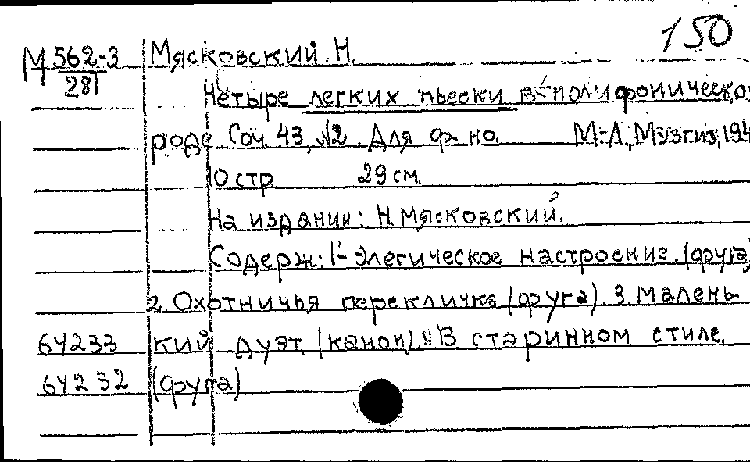 150
М 562-3 Мясковский Н.
281
Четыре легких пьески в полифоническо
роде Соч. 43, №2. Для ф-но. М-Л, Музгиз, 194
10 стр 29 см.
На издании: Н. Мясковский.
Содерж: 1- Элегическое настроение. (фуга)
2. Охотничья перекличка (фуга). 3. Малень
64233 кий дуэт (канон) В старинном стиле.
64232 (фуга)